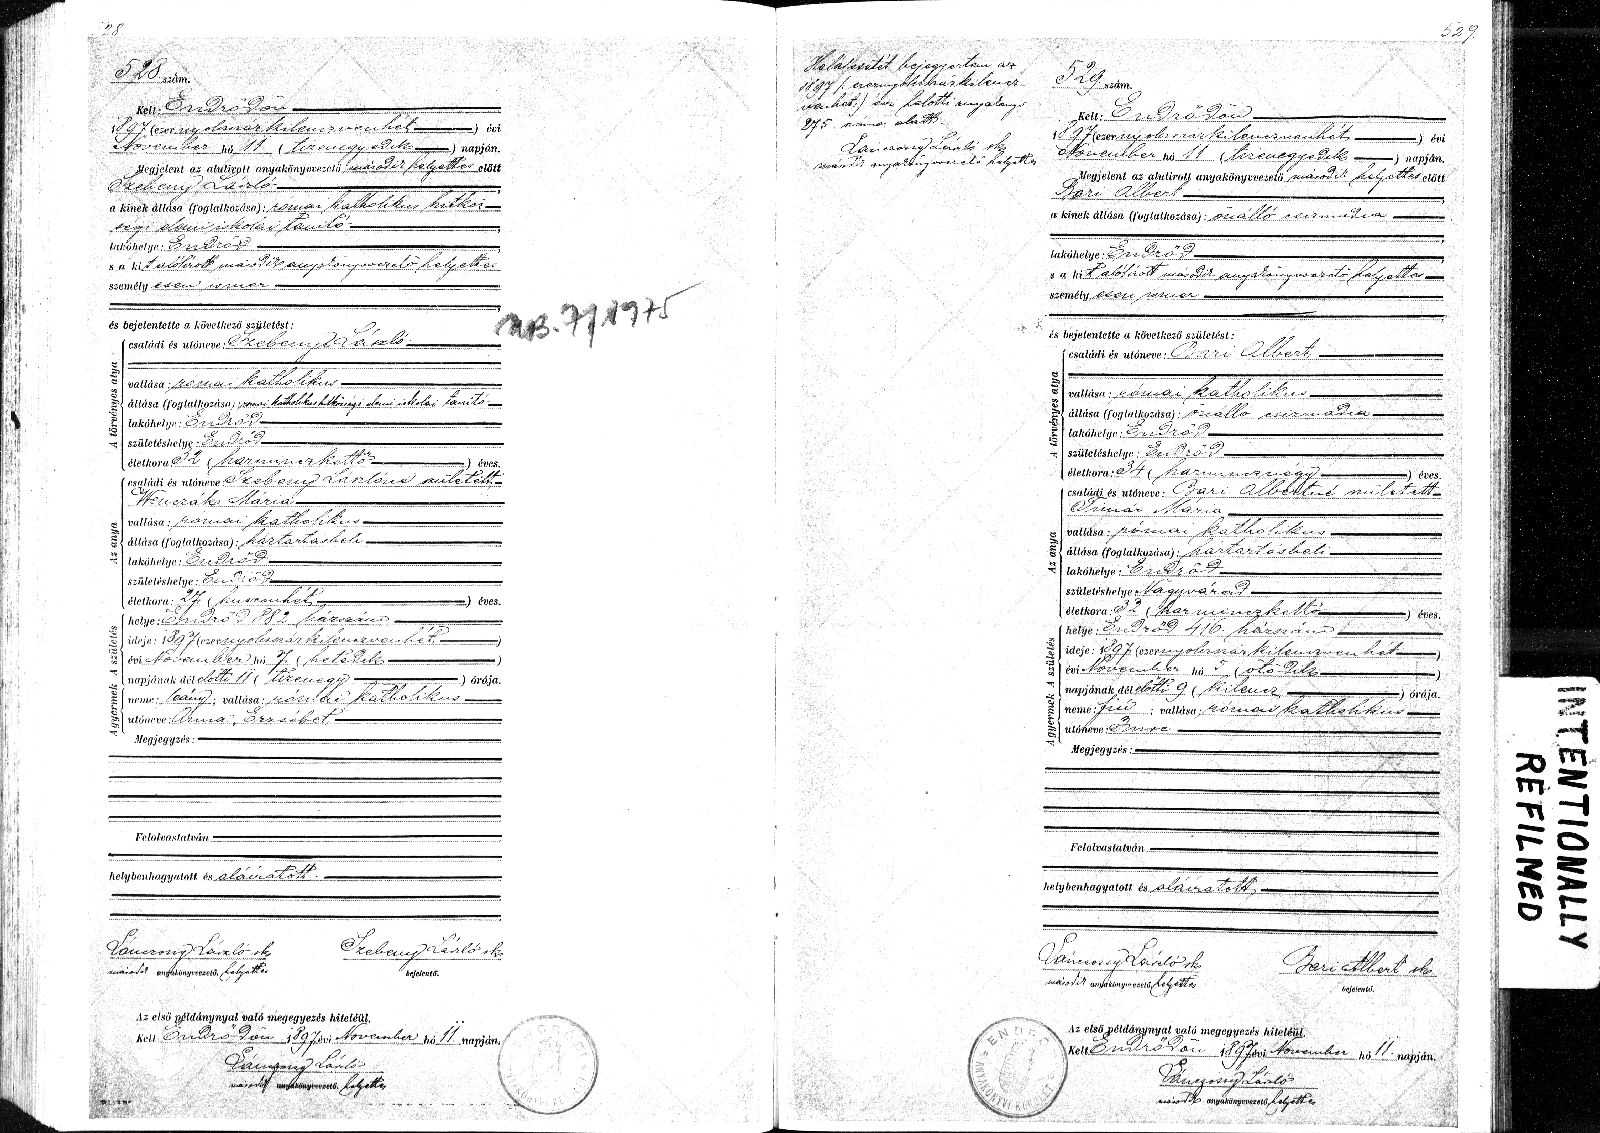 28
528 szám.
Kelt: Endrődön
1897 (ezernyolcszázkilenczvenhét) évi
November hó 11 (tizenegyedik) napján.
Megjelent az alulirott anyakönyvvezető másodík helyettes előtt
Szebeny László
a kinek állása (foglalkozása): római katholikus hitköz-
ségi elemi iskolai tanító
lakóhelye: Endrőd
s a kit alólirott másodík anyakönyvvezető helyettes
személyesen ismer
és bejelentette a következő születést:
A törvényes atya
családi és utóneve: Szebeny László
vallása: római katholikus
állása (foglalkozása): római katholikus hitközségi elemi iskolai tanító
lakóhelye: Endrőd
születéshelye: Endrőd
életkora: 32 (harminczkettő) éves.
Az anya
családi és utóneve: Szebeny Lászlóné született
Wenczák Mária
vallása: római katholikus
állása (foglalkozása): háztartásbeli
lakóhelye: Endrőd
születéshelye: Endrőd
életkora: 27 (huszonhét) éves.
A gyermek A születés
helye: Endrőd 882 házszám
ideje: 1897 (ezernyolcszázkilenczvenhét)
évi November hó 7 (hetedik)
napjának délelőtti 11 (tizenegy) órája.
neme: leány; vallása: római katholikus
utóneve: Anna, Erzsébet
Megjegyzés:
Felolvastatván
helybenhagyatott és aláiratott.
Vánczony László sk
Szebeny László sk
másodík anyakönyvvezető, helyettes
bejelentő.
Az első példánynyal való megegyezés hiteléül.
Kelt Endrődön 1897 évi November hó 11 napján.
Vánczony László
másodík anyakönyvvezető, helyettes
NB. 7/1975
529
Halálesetét bejegyeztem az
1897 (ezernyolczszázkilencz-
venhét) évi halotti anyakönyv
275 szám alatt.
Vánczony László sk
másodík anyakönyvvezető helyettes
529 szám.
Kelt: Endrődön
1897 (ezernyolcszázkilenczvenhét) évi
November hó 11 (tizenegyedik) napján.
Megjelent az alulirott anyakönyvvezető másodík helyettes előtt
Bari Albert
a kinek állása (foglalkozása): önálló csizmadia
lakóhelye: Endrőd
s a kit alólirott másodík anyakönyvvezető helyettes
személyesen ismer
és bejelentette a következő születést:
A törvényes atya
családi és utóneve: Bari Albert
vallása: római katholikus
állása (foglalkozása): önálló csizmadia
lakóhelye: Endrőd
születéshelye: Endrőd
életkora: 34 (harmincznégy) éves.
Az anya
családi és utóneve: Bari Albertné született
Tímár Mária
vallása: római katholikus
állása (foglalkozása): háztartásbeli
lakóhelye: Endrőd
születéshelye: Nagyvárad
életkora: 32 (harminczkettő) éves.
A gyermek A születés
helye: Endrőd 416 házszám
ideje: 1897 (ezernyolcszázkilenczvenhét)
évi November hó 5 (ötödik)
napjának délelőtti 9 (kilencz) órája.
neme: fiú; vallása: római katholikus
utóneve: Imre
Megjegyzés:
Felolvastatván
helybenhagyatott és aláiratott.
Vánczony László sk
Bari Albert sk
másodík anyakönyvvezető, helyettes
bejelentő.
Az első példánynyal való megegyezés hiteléül.
Kelt Endrődön 1897 évi November hó 11 napján.
Vánczony László
másodík anyakönyvvezető, helyettes
INTENTIONALLY
REFILMED